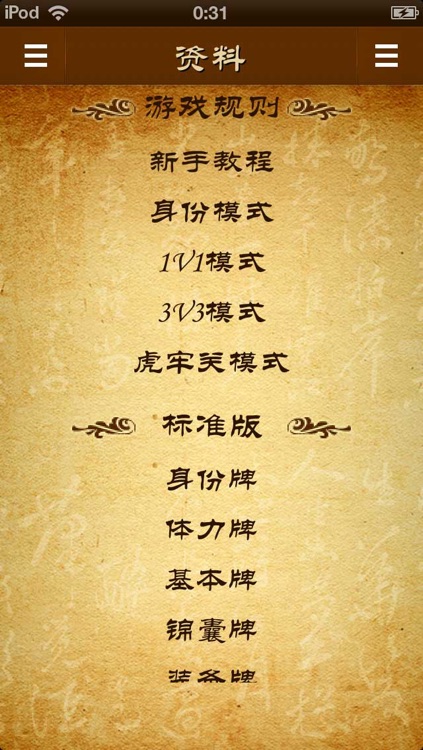 iPod 0:31
资料
游戏规则
新手教程
身份模式
1V1模式
3V3模式
虎牢关模式
标准版
身份牌
体力牌
基本牌
锦囊牌
装备牌